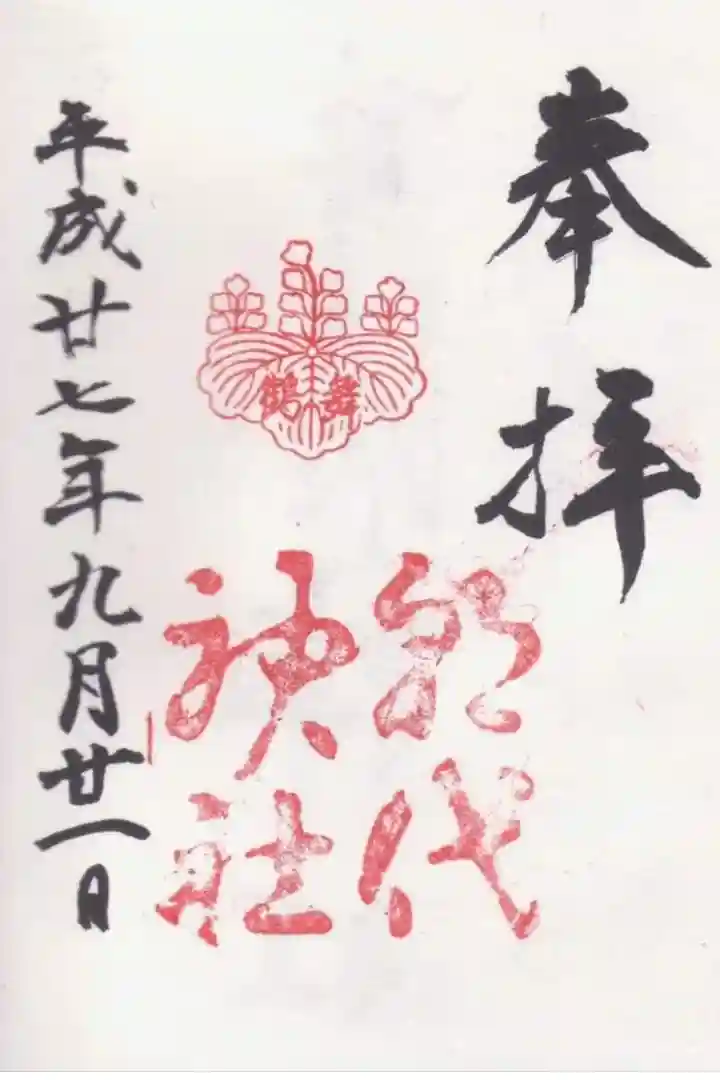 奉拝
舞鶴
朝代
神社
平成廿七年九月廿一日